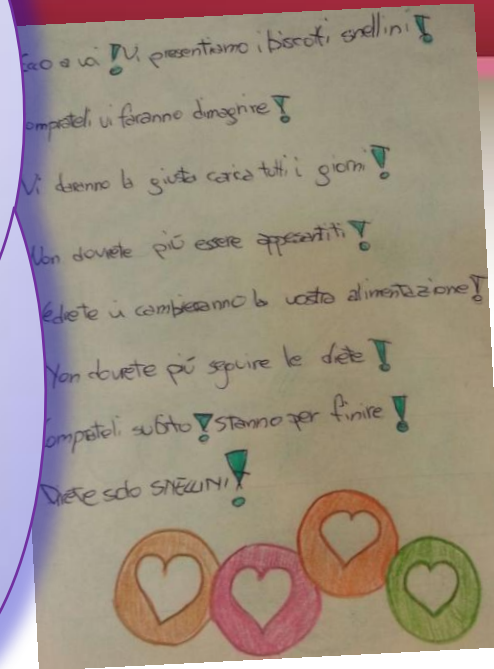 ecco a voi! Vi presentiamo i biscotti snellini!
omprateli vi faranno dimagrire!
Vi daranno la giusta carica tutti i giorni!
Non dovrete più essere appesantiti!
edrete vi cambieranno la vostra alimentazione!
Non dovrete più seguire le diete!
omprateli subito! stanno per finire!
Diete solo SNELLINI!